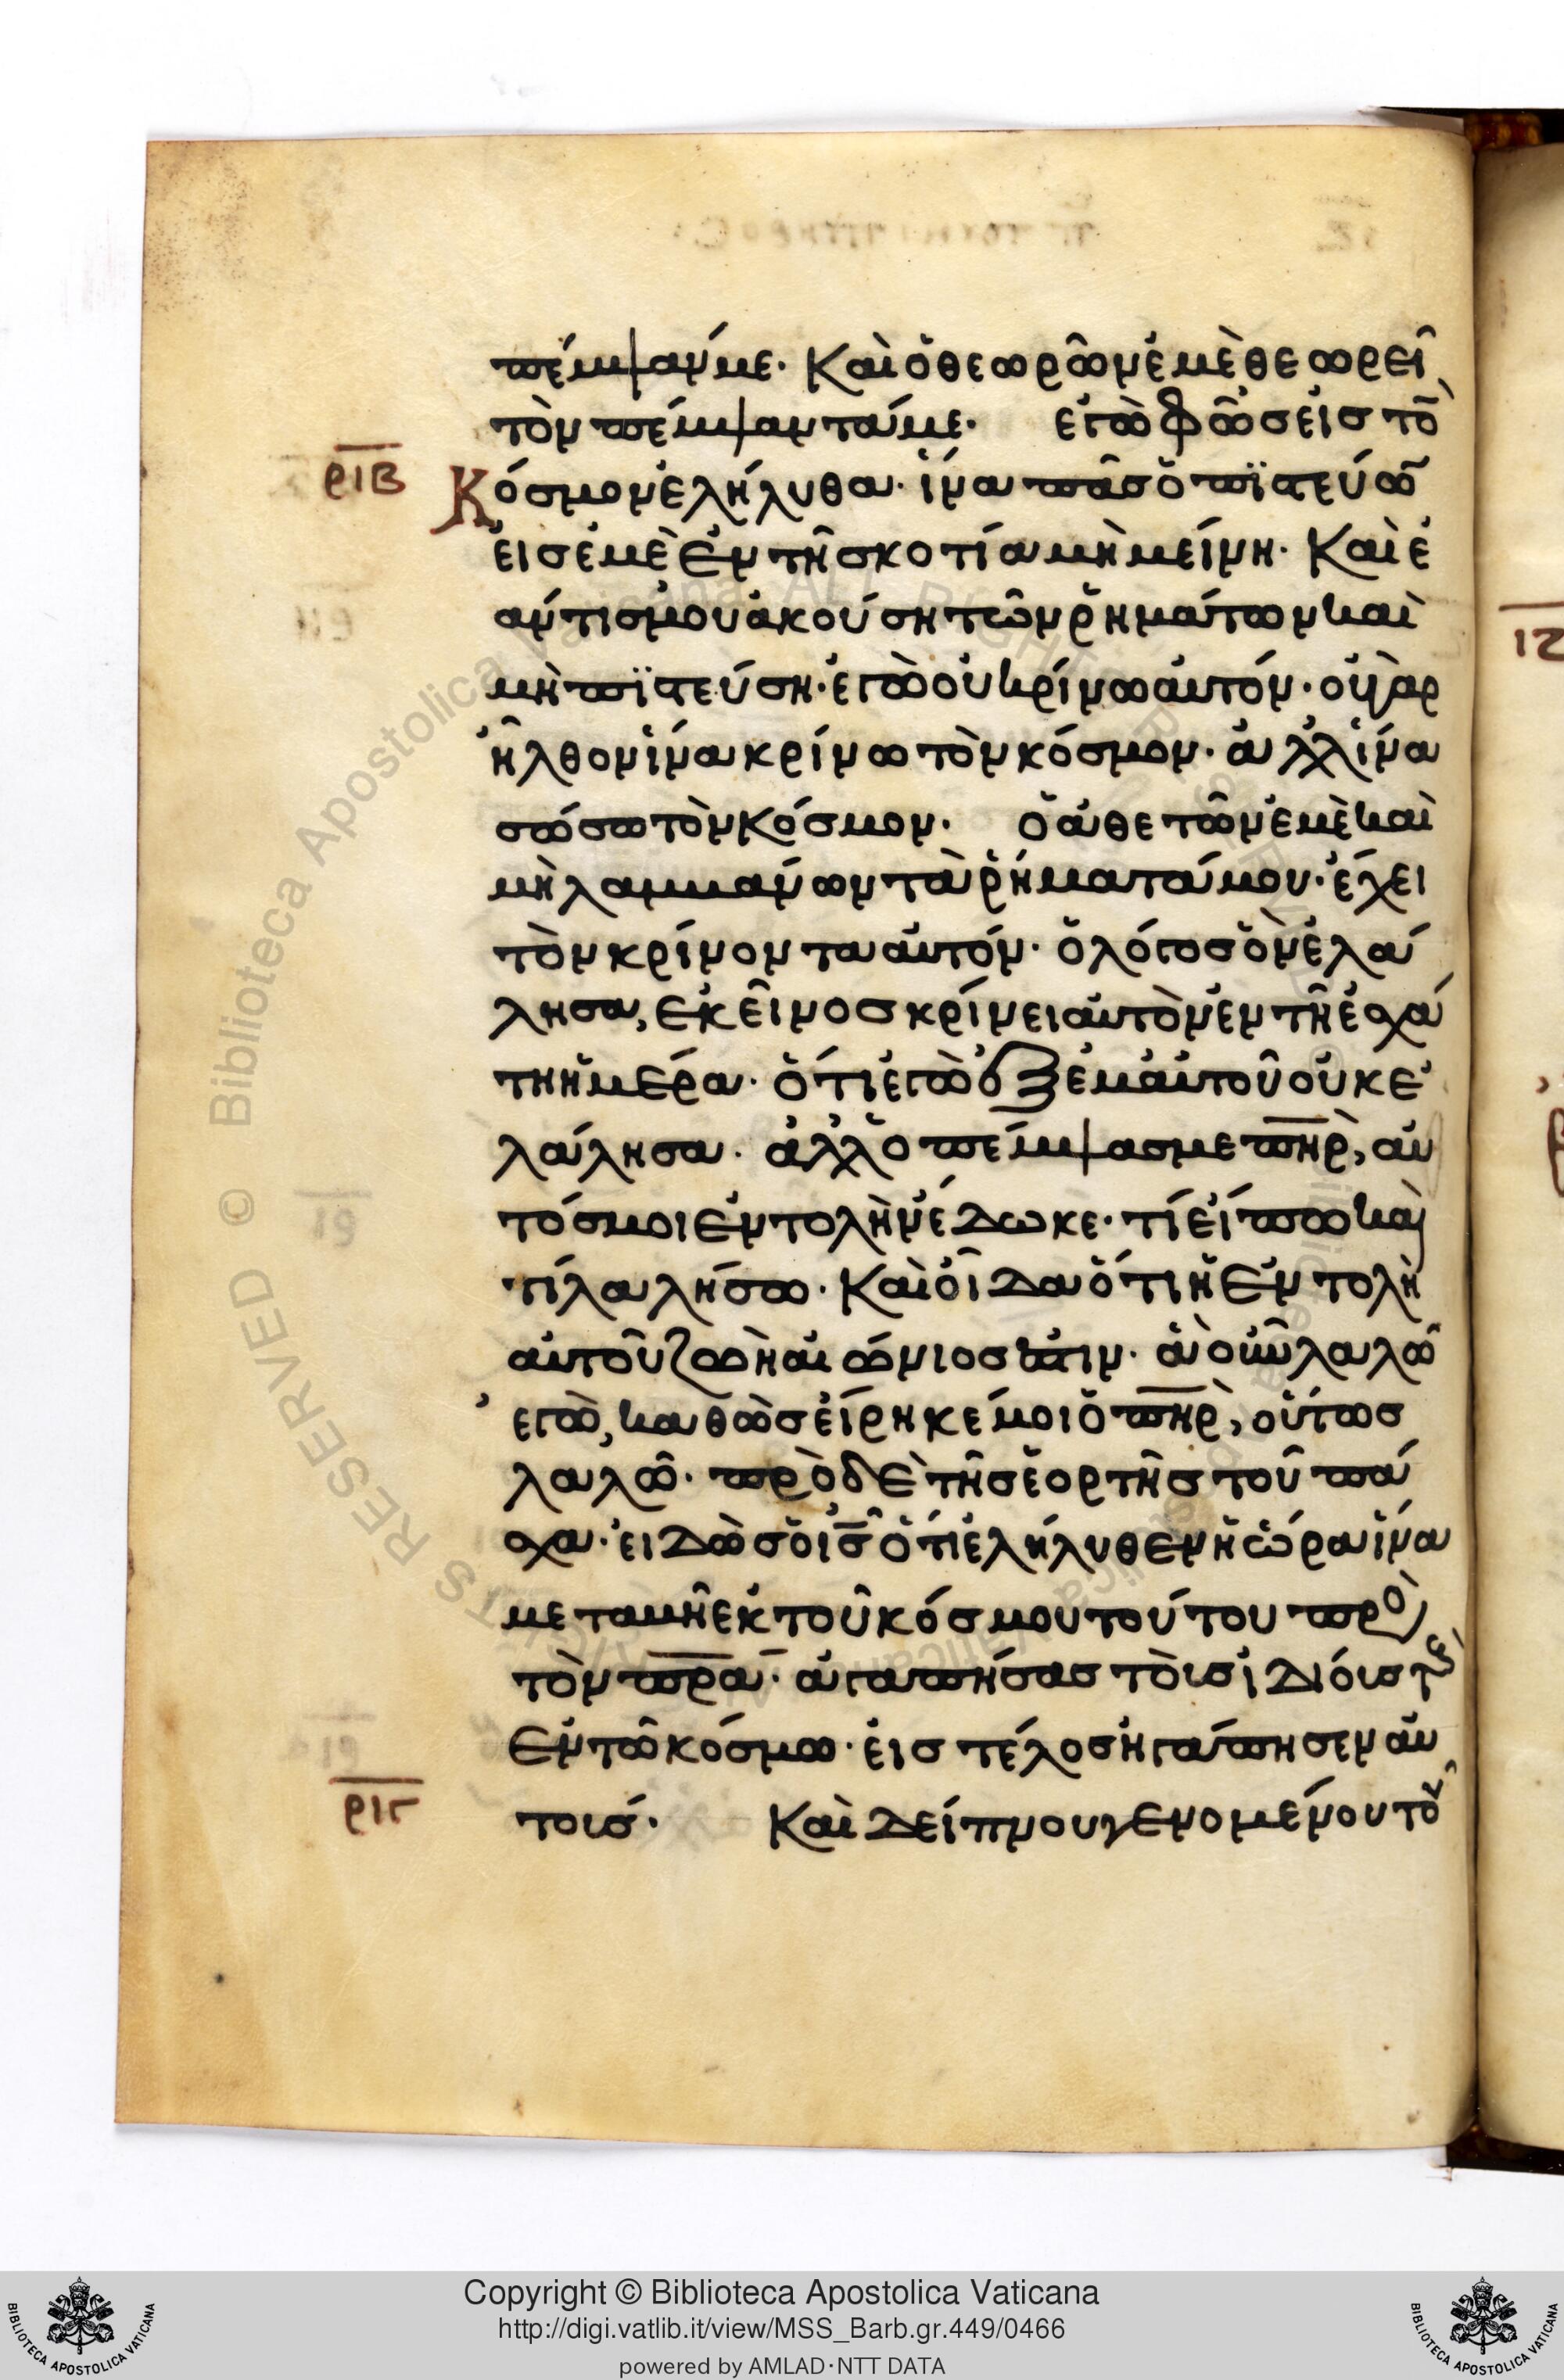 πέμψάνμε· Καὶ ὁ θεωρῶν ἐμὲ θεωρεῖ
τὸν πέμψαντάμε· ἐγὼ φῶς εἰς τὸ
ριβ Κόσμον ἐλήλυθα· ἵνα πᾶς ὁ πϊστεύω
εἰς ἐμὲ ἐν τῆ σκοτία μὴ μείνη· Καὶ ἐ
άν τισ μου ἀκούση τῶν ῥημάτων καὶ
μὴ πϊστεύση· ἐγὼ οὐ κρίνω αὐτόν· οὐ γὰρ
ἦλθον ἵνα κρίνω τὸν κόσμον· ἀλλ' ἵνα
σώσω τὸν Κόσμον· ὁ ἀθετῶν ἐμὲ καὶ
μὴ λαμμάνων τὰ ῥήματά μου· ἔχει
τὸν κρίνοντα αὐτόν· ὁ λόγοσ ὃν ἐλά
λησα, ἐκεῖνοσ κρίνει αὐτὸν ἐν τῆ ἐσχά
τη ἡμέρα· ὅτι ἐγὼ ἐξ ἐμαυτοῦ οὐκ ἐ
λάλησα· ἀλλ' ὁ πέμψασ με πηρ, αὐ
τόσ μοι ἐντολὴν ἔδωκε· τί εἴπω καὶ
τί λαλήσω· Καὶ οἶδα ὅτι ἡ ἐντολὴ
αὐτοῦ ζωὴ αἰώνιοσ ἐστιν· ἃ οὖν λαλῶ
ἐγὼ, καθὼσ εἴρηκέ μοι ὁ πηρ, οὕτωσ
λαλῶ· πρὸ δὲ τῆσ ἑορτῆσ τοῦ πά
σχα· εἰδὼσ ὁ ισ ὅτι ἐλήλυθεν ἡ ὥρα ἵνα
μεταβῆ ἐκ τοῦ κόσμου τούτου πρὸ
τὸν πρα· ἀγαπήσασ τοὺσ ἰδίουσ τοὺσ
ἐν τῶ κόσμω· εἰσ τέλοσ ἠγάπησεν αὐ
ριγ τούσ· Καὶ δείπνου γενομένου το
Copyright © Biblioteca Apostolica Vaticana
http://digi.vatlib.it/view/MSS_Barb.gr.449/0466
powered by AMLAD·NTT DATA